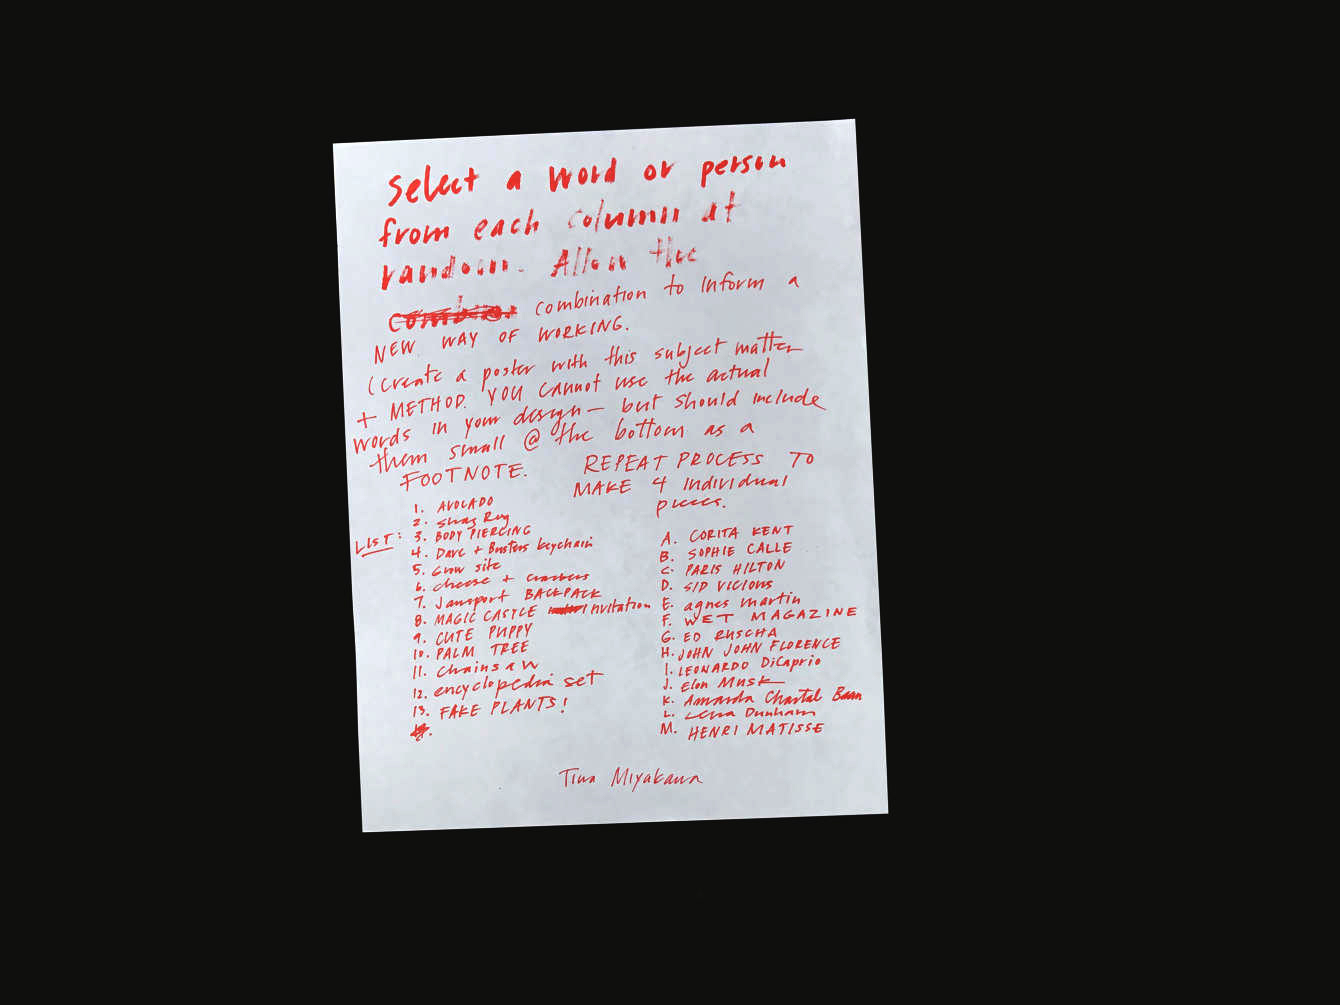 Select a word or person
from each column at
random. Allow the
combin. combination to inform a
NEW WAY OF WORKING.
(create a poster with this subject matter
+ METHOD. YOU CANNOT use the actual
words in your design — but should include
them small @ the bottom as a
FOOTNOTE.
REPEAT PROCESS TO
MAKE 4 Individual
pieces.
LIST:
1. AVOCADO
2. Shag Rug
3. BODY PIERCING
4. Dave + Busters keychain
5. Gnw site
6. cheese + crackers
7. Jansport BACKPACK
8. MAGIC CASTLE invitation
9. CUTE PUPPY
10. PALM TREE
11. chainsaw
12. encyclopedia set
13. FAKE PLANTS!
A. CORITA KENT
B. SOPHIE CALLE
C. PARIS HILTON
D. SID VICIOUS
E. agnes martin
F. WET MAGAZINE
G. ED RUSCHA
H. JOHN JOHN FLORENCE
I. LEONARDO DiCaprio
J. Elon Musk
K. Amanda Chantal Bacon
L. Lena Dunham
M. HENRI MATISSE
Tina Miyakawa